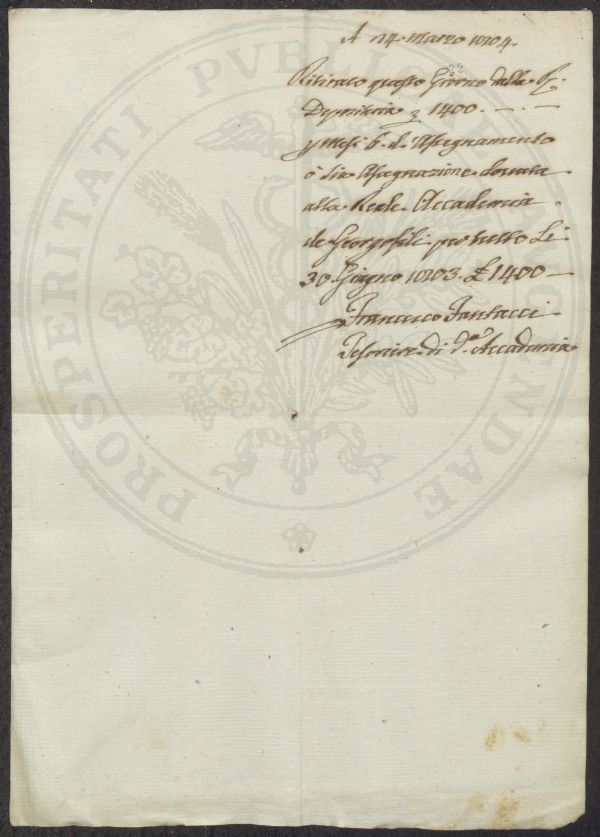 A 14. Marzo 1804.
Ritirato questo Giorno dalla R.
Depositeria 1400.
p mesi 6. d'Assegnamento
o sia Assegnazione dovuta
alla Reale Accademia
de Georgofili per tutto Li
30. Giugno 1803. £ 1400 —
Francesco Fantacci
Tesoriere di d.ª Accademia
PROSPERITATI PVBLICAE AVGENDAE